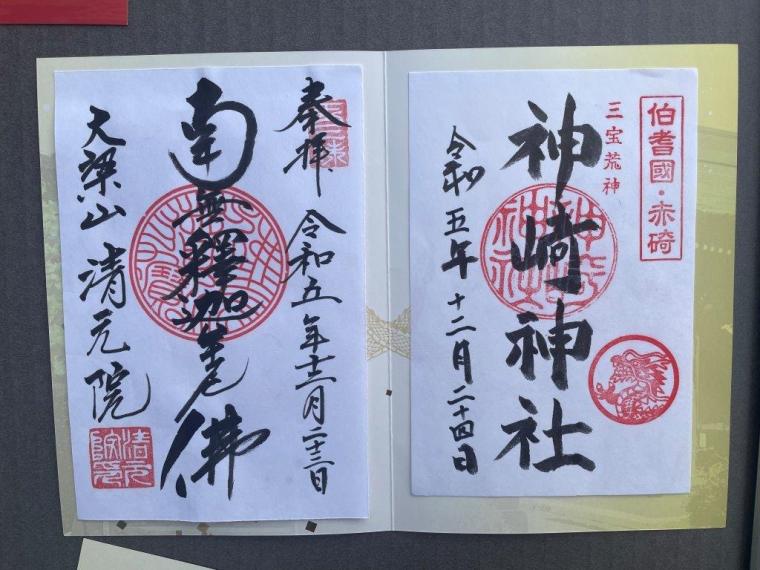 伯耆國・赤碕
三宝荒神
神崎神社
令和五年十二月二十四日
奉拝
令和五年十二月二十三日
南無釋迦牟尼佛
大梁山 清元院